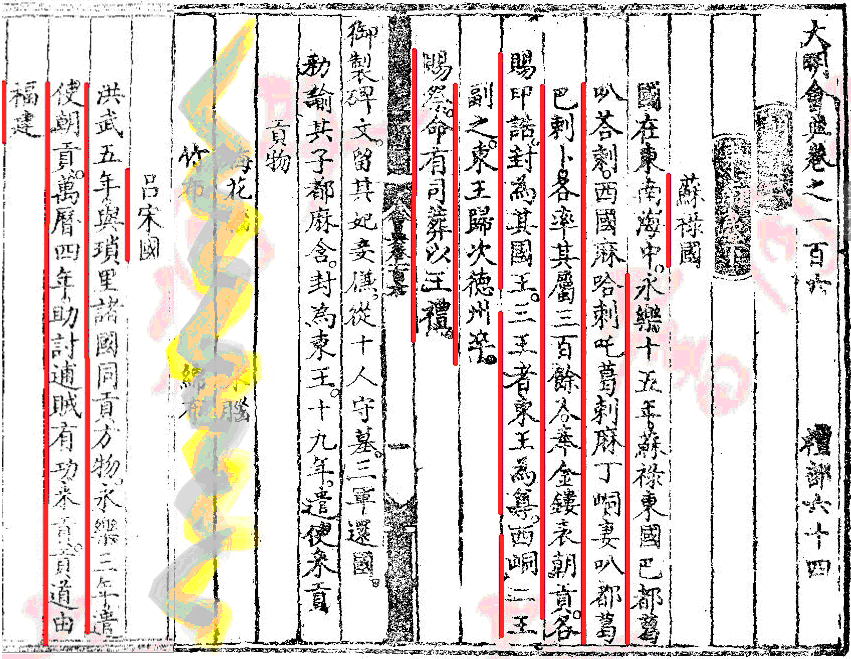 大明會典卷之一百六 禮部六十四
蘇祿國
國在東南海中。永樂十五年。蘇祿東國巴都葛
叭荅剌。西國麻哈剌吒葛剌麻丁峒妻叭都葛
巴剌卜。各率其屬三百餘人。奉金鏤表朝貢。各
賜印誥。封為其國王。三王者。東王為尊。西峒二王
副之。東王歸次德州卒。
賜祭。命有司葬以王禮。
一
御製碑文。留其妃妾傔從十人守墓。三年還國。
勑諭其子都麻含。封為東王。十九年。遣使來貢
貢物
梅花腦
竹布 綿布
呂宋國
洪武五年。與瑣里諸國同貢方物。永樂三年。遣
使朝貢。萬曆四年。助討逋賊有功。來貢。貢道由
福建